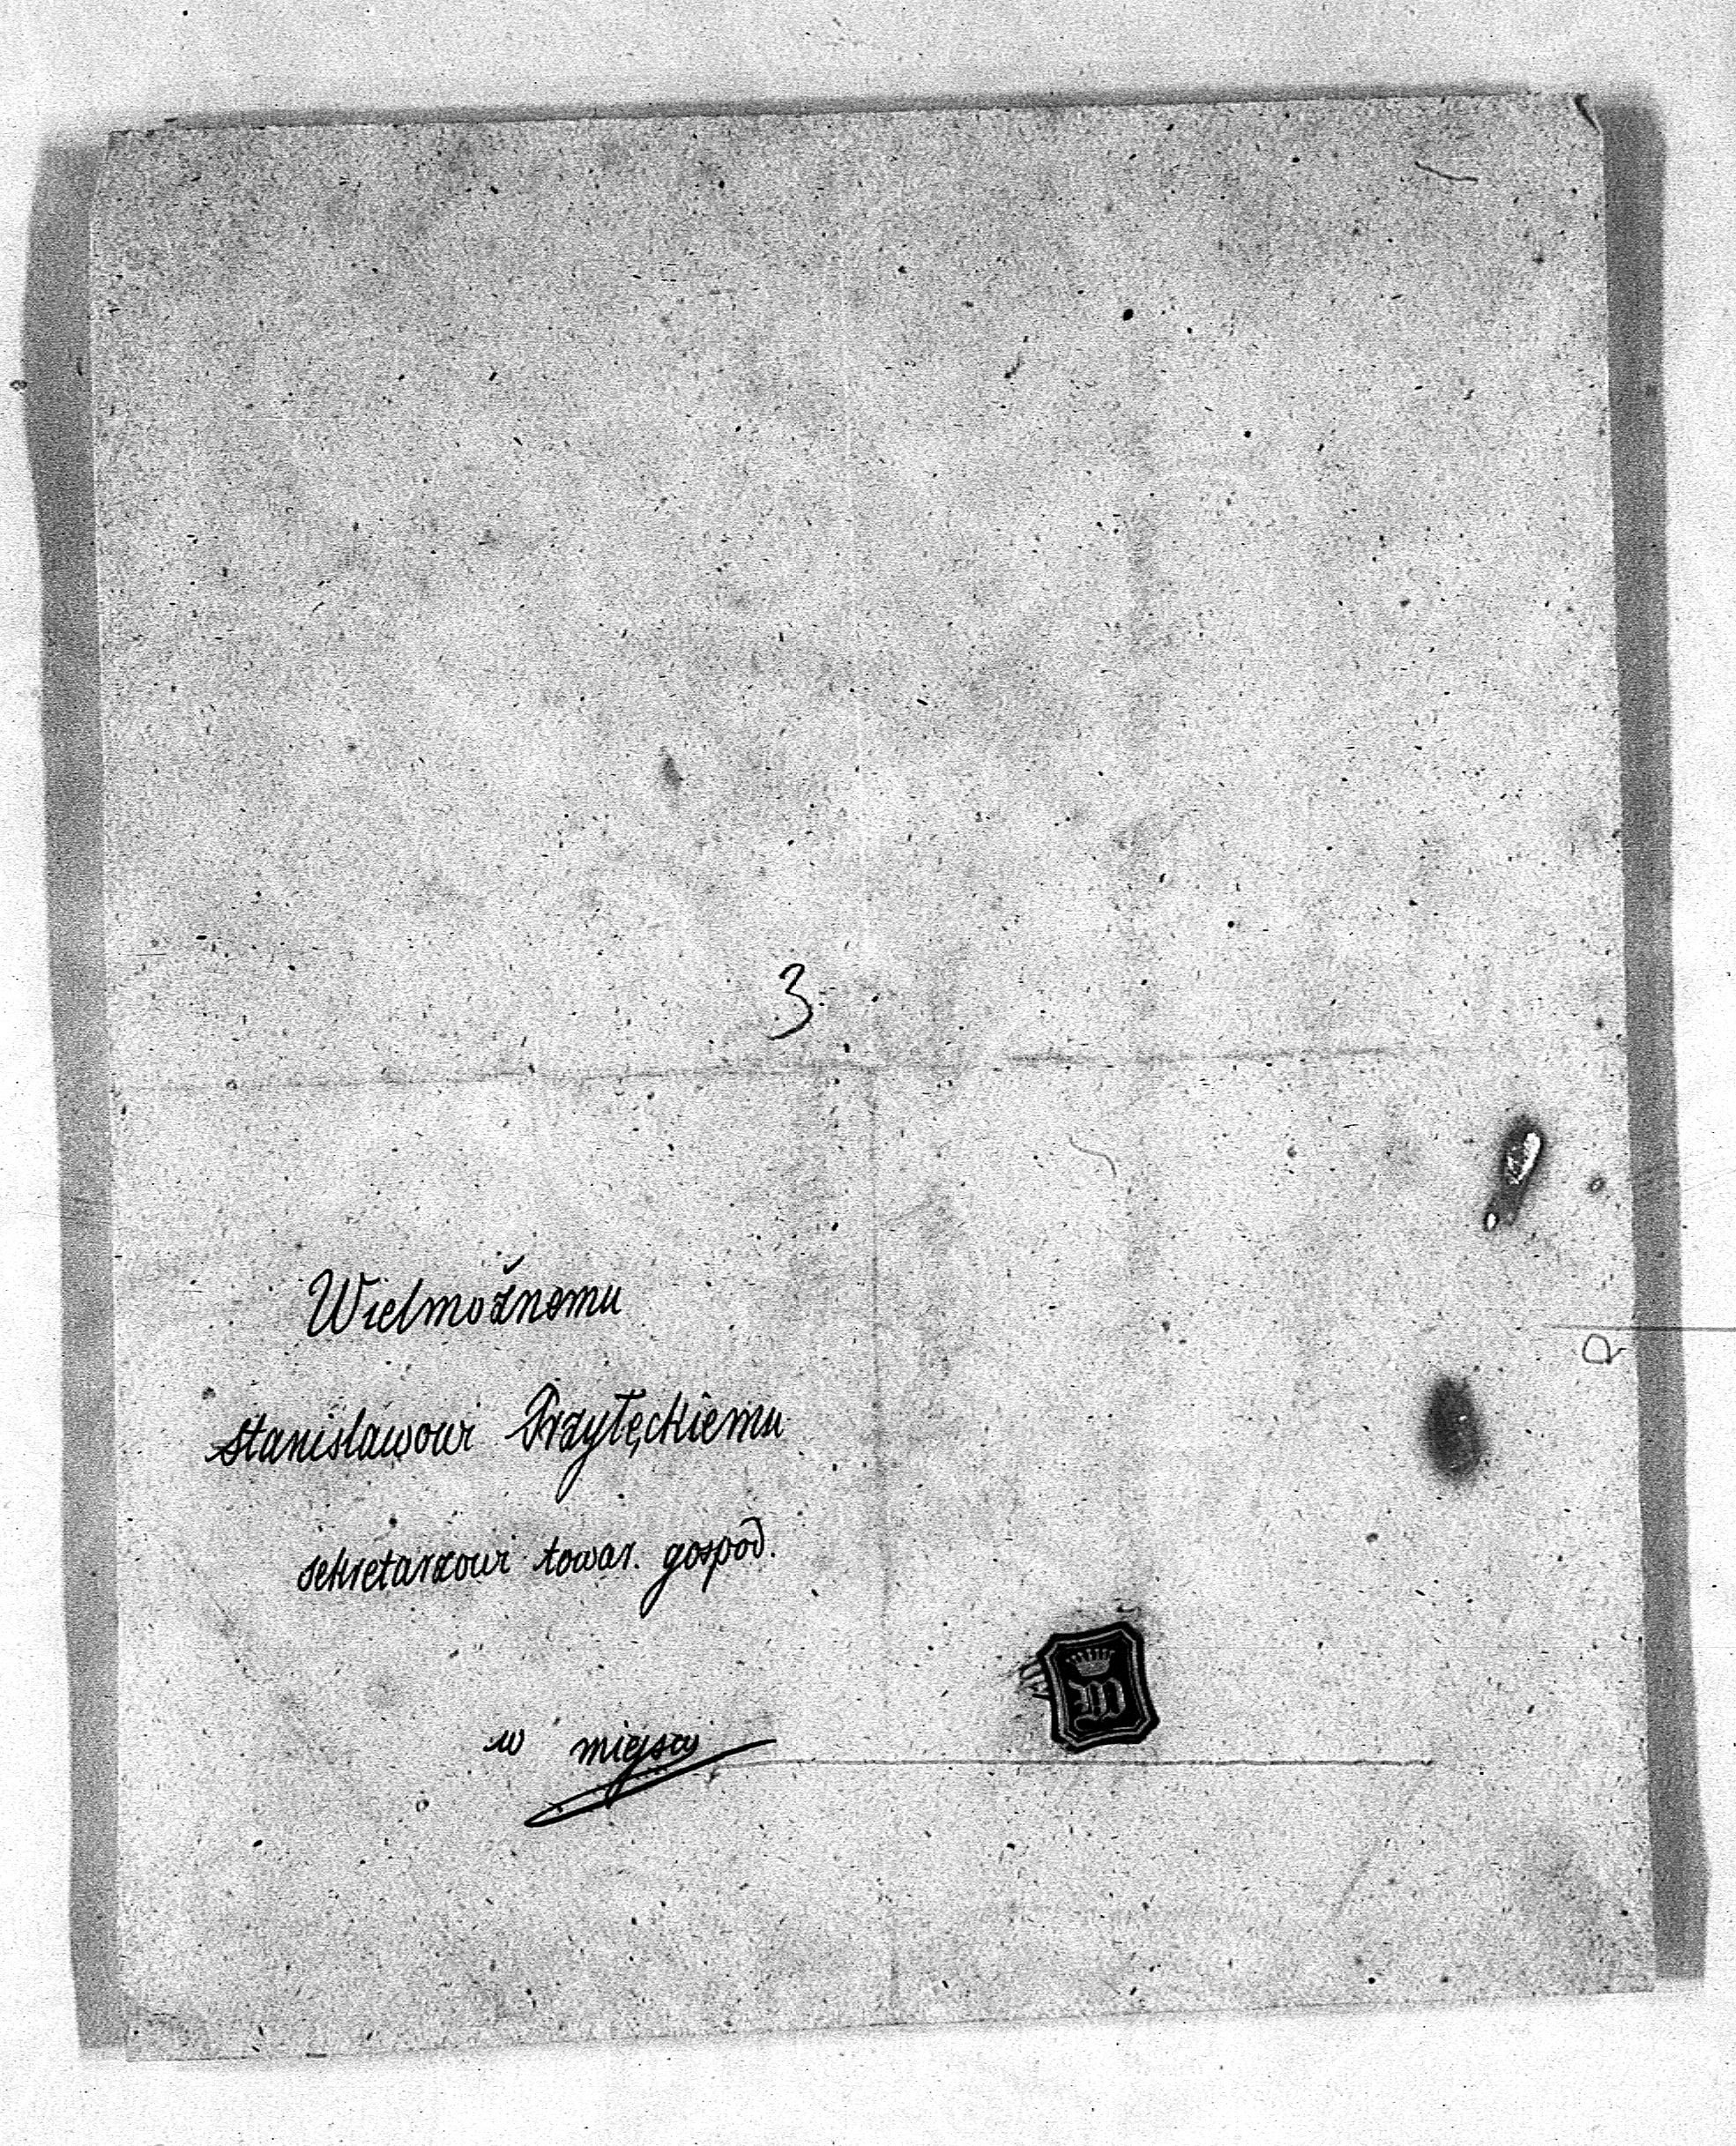 3
Wielmożnemu
Stanisławowi Przyłęckiemu
sekretarzowi towar. gospod.
w miejscu